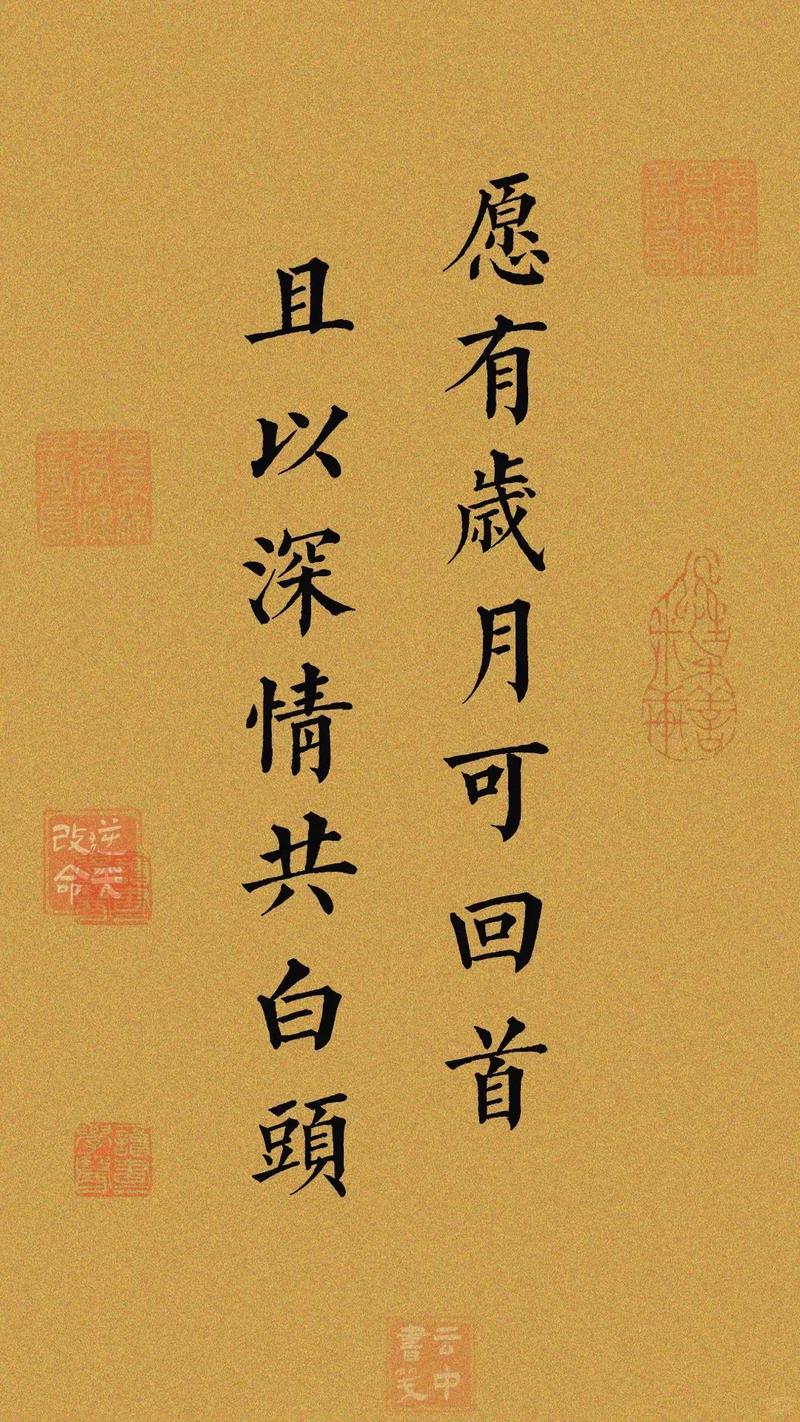 愿有歲月可回首
且以深情共白頭
逆天改命
云中書笺